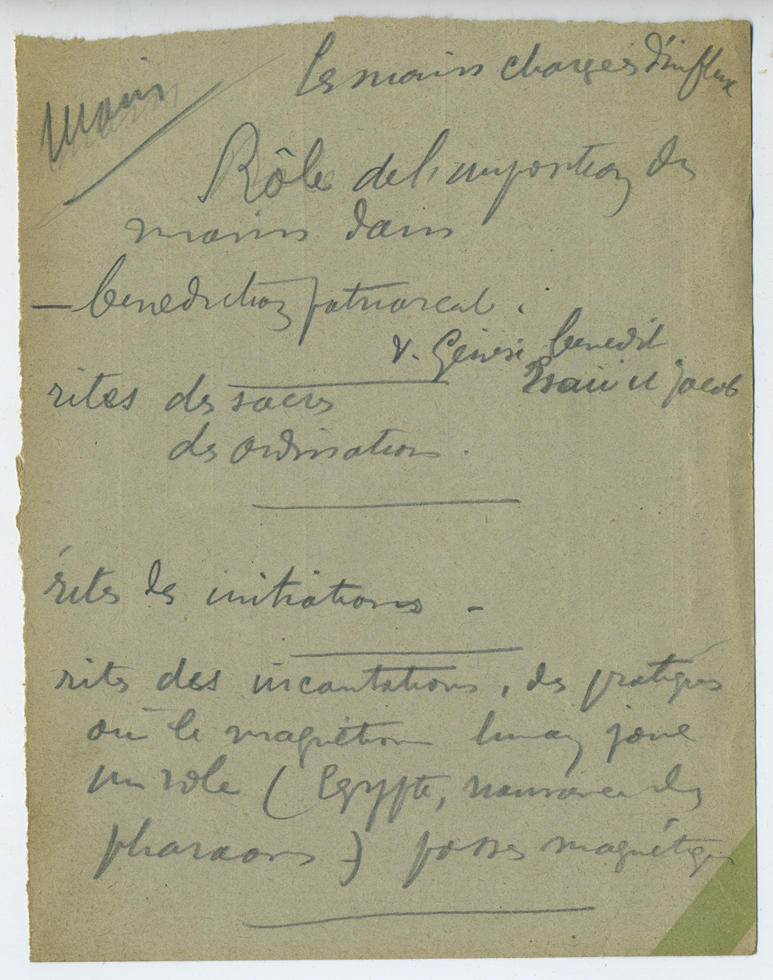 Les mains chargées d'influx
Mains
Rôle de l'imposition des
mains dans
— bénédiction patriarcal.
v. Genèse, bénédit
Esaü et Jacob
rites des sacres
des ordinations.
rites des initiations -
rites des incantations, des pratiques
où le magnétisme humain joue
un rôle (Egypte, naissance des
pharaons) passes magnétiques